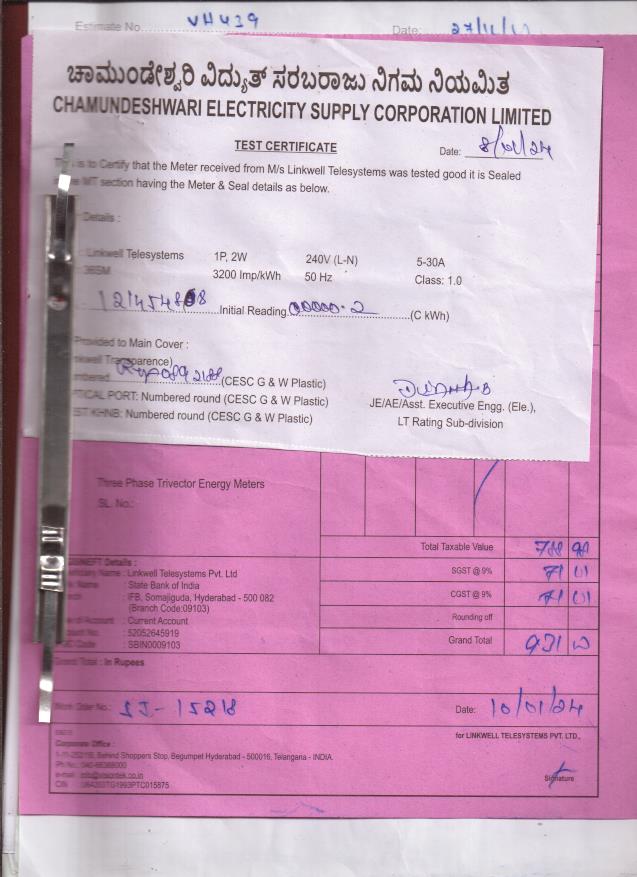 Estimate No. VH439 Date: 27/11/
ಚಾಮುಂಡೇಶ್ವರಿ ವಿದ್ಯುತ್ ಸರಬರಾಜು ನಿಗಮ ನಿಯಮಿತ
CHAMUNDESHWARI ELECTRICITY SUPPLY CORPORATION LIMITED
TEST CERTIFICATE Date: 8/01/24
is to Certify that the Meter received from M/s Linkwell Telesystems was tested good it is Sealed
MT section having the Meter & Seal details as below.
Details :
Linkwell Telesystems 1P, 2W 240V (L-N) 5-30A
3200 Imp/kWh 50 Hz Class: 1.0
Initial Reading 00000.2 (C kWh)
Provided to Main Cover :
Transparence)
(CESC G & W Plastic)
PORT: Numbered round (CESC G & W Plastic)
KHNB: Numbered round (CESC G & W Plastic)
JE/AE/Asst. Executive Engg. (Ele.),
LT Rating Sub-division
Three Phase Trivector Energy Meters
SL. No.:
Total Taxable Value 788 98
SGST @ 9% 71 01
CGST @ 9% 71 01
Rounding off
Grand Total 931 00
Details :
Name : Linkwell Telesystems Pvt. Ltd
Name : State Bank of India
IFB, Somajiguda, Hyderabad - 500 082
(Branch Code:09103)
Account : Current Account
No. : 52052645919
Code : SBIN0009103
Grand Total : In Rupees
Work Order No.: SJ-15218 Date: 10/01/24
for LINKWELL TELESYSTEMS PVT. LTD.,
Corporate Office :
Behind Shoppers Stop, Begumpet Hyderabad - 500016, Telangana - INDIA.
Signature